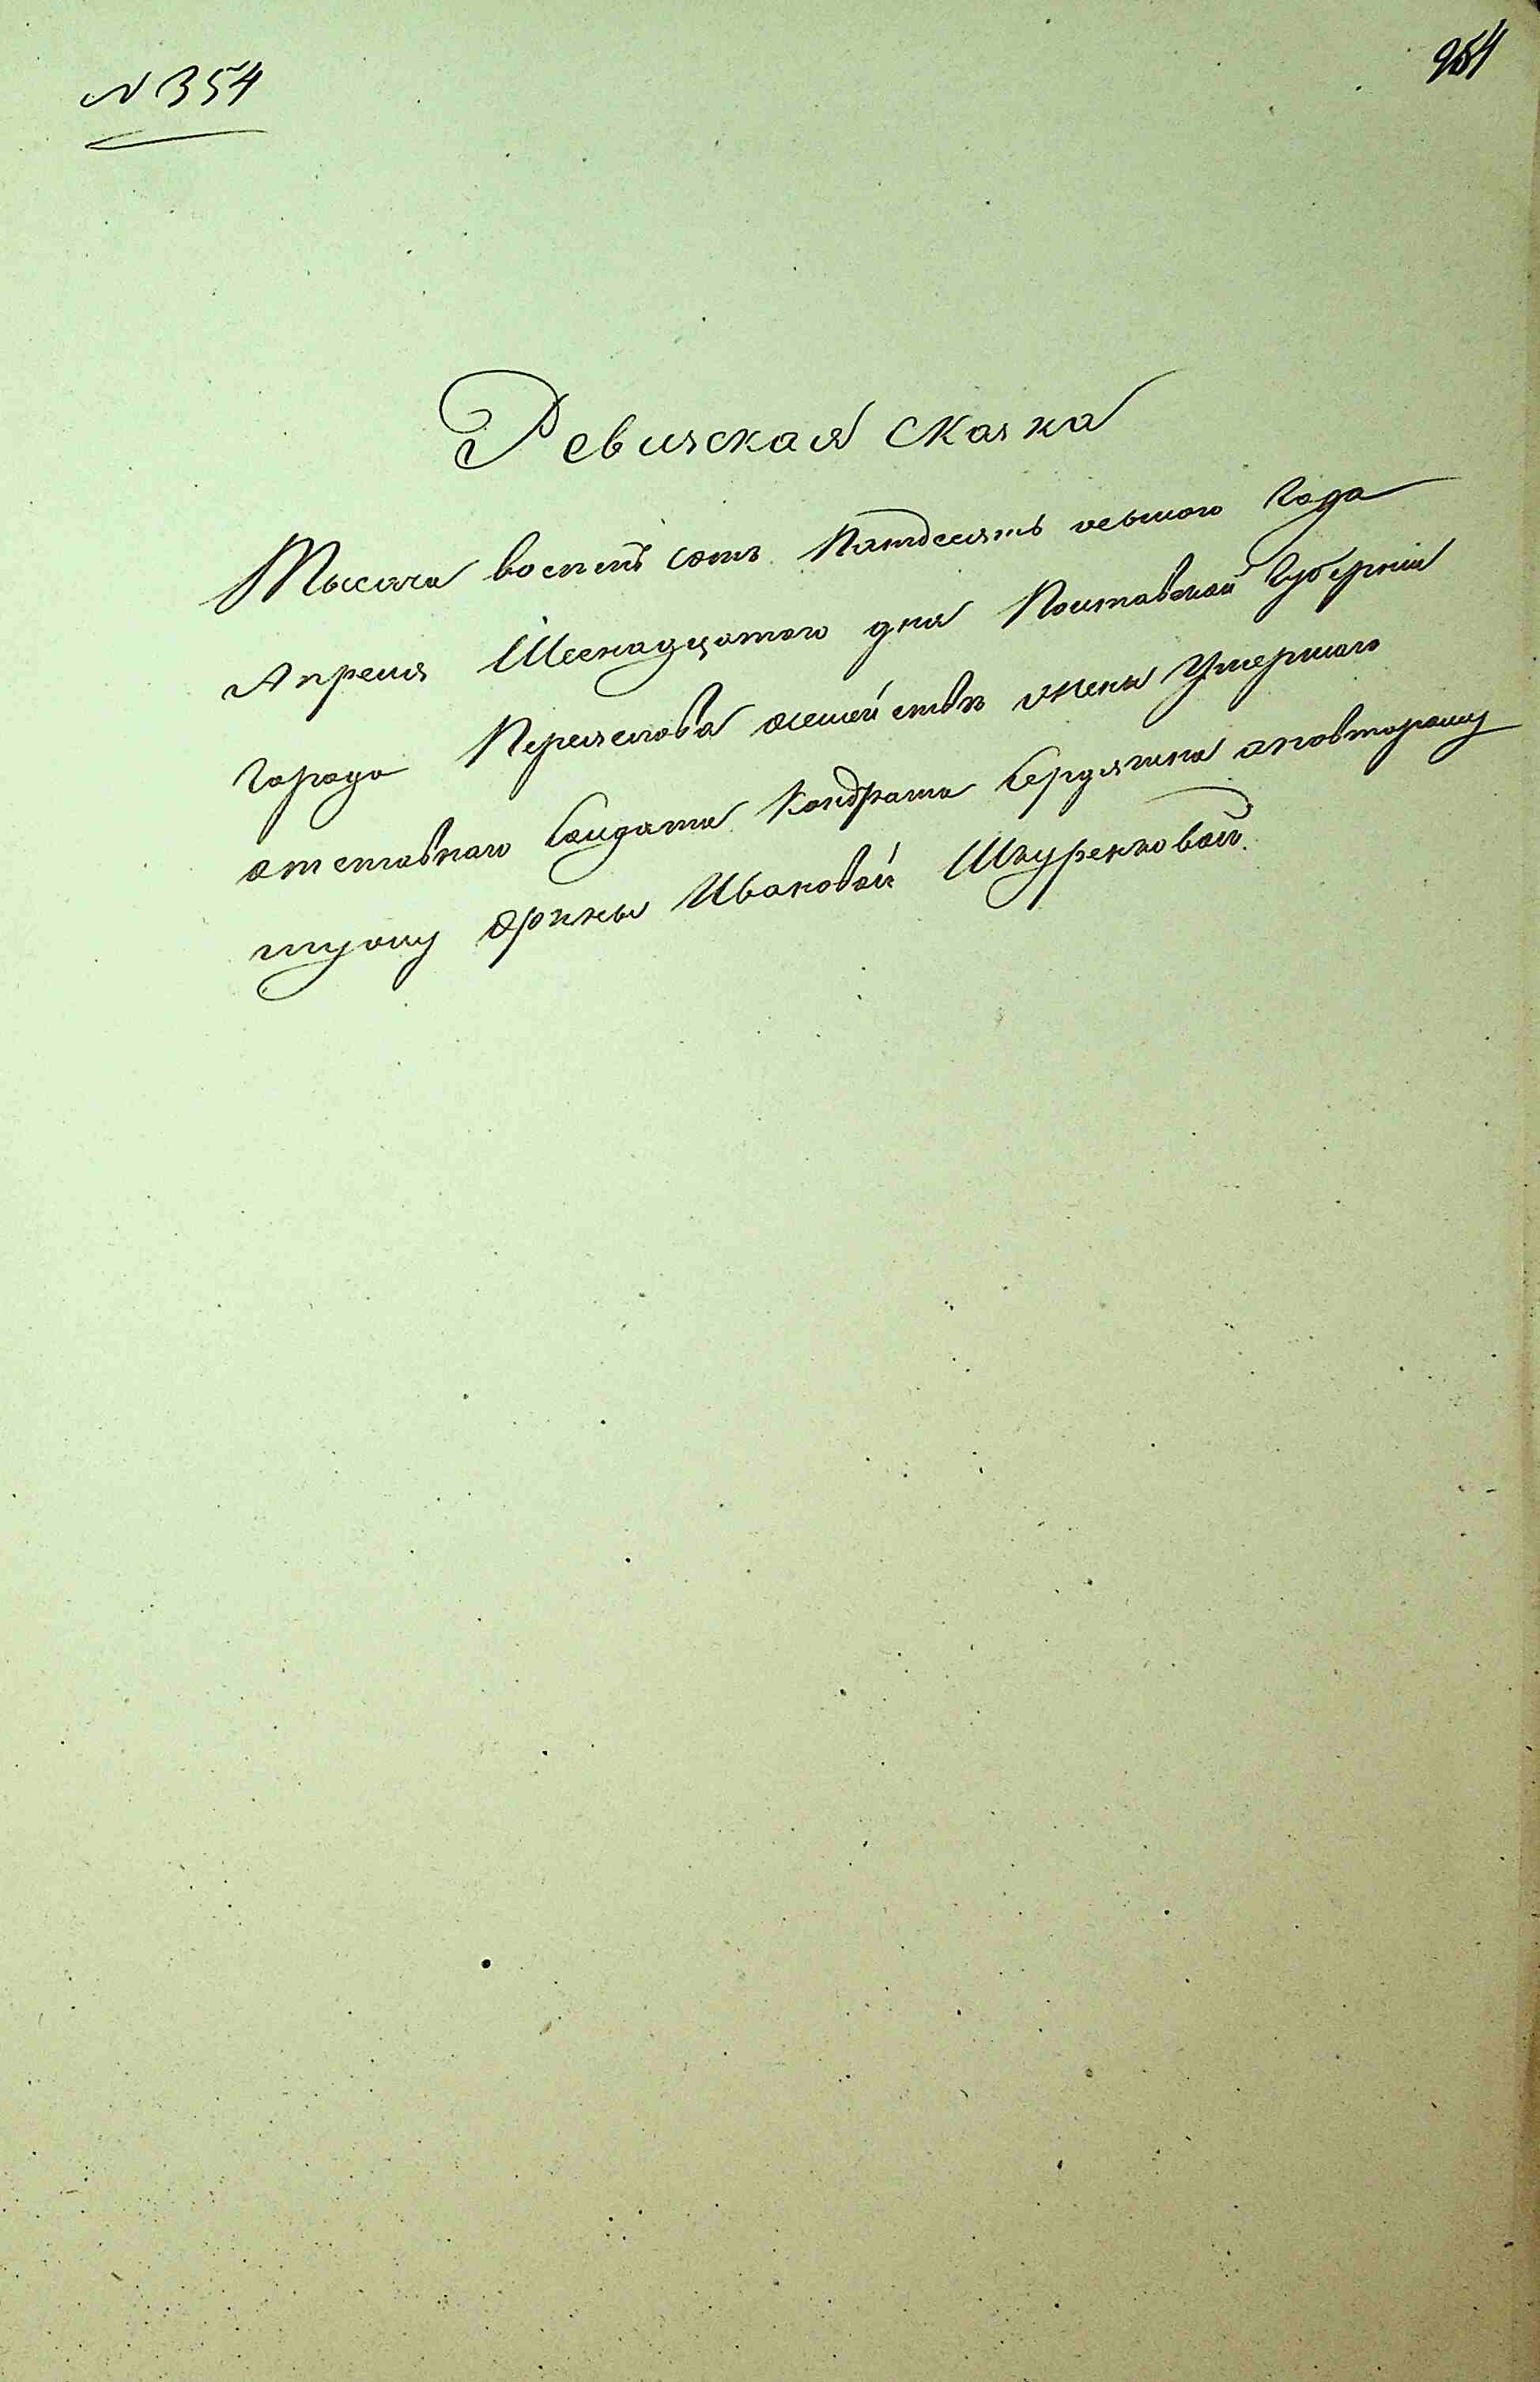 № 354
254
Ревизская сказка
Тысяча восемь сотъ Пятдесятъ осьмого Года
Апреля Шеснадцатого дня Полтавской Губерніи
Города Переяслова жены Умершаго
отставного Солдата Кондрата повторому
мужу Орины Ивановой Шкуренковой